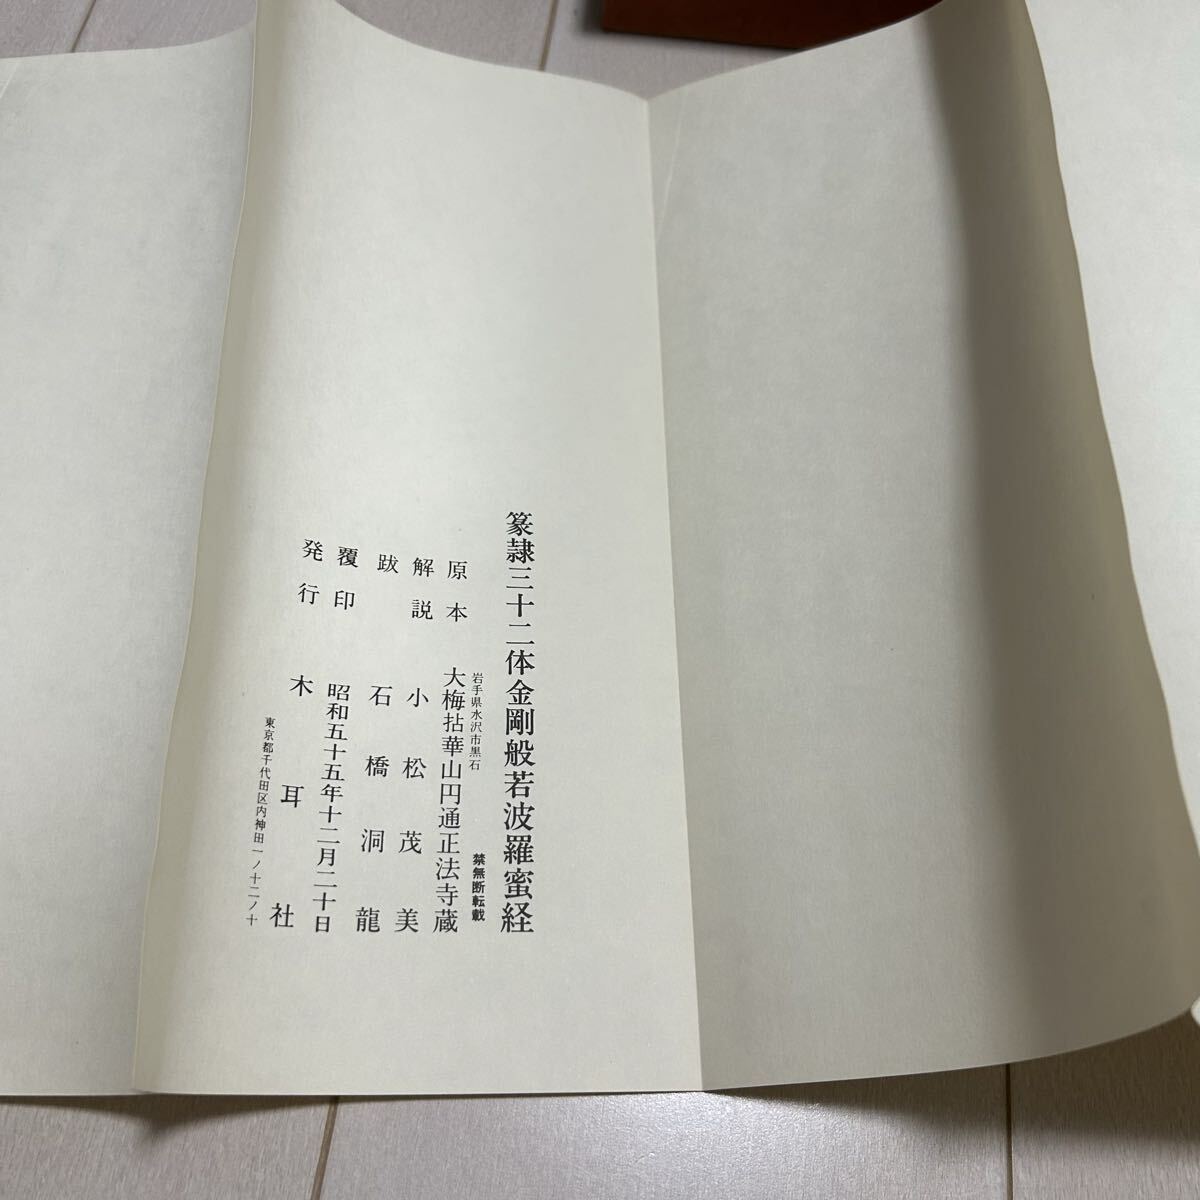 篆隷三十二体金剛般若波羅蜜経
禁無断転載
岩手県水沢市黒石
原本 大梅拈華山円通正法寺蔵
解説 小松茂美
跋 石橋洞龍
覆印 昭和五十五年十二月二十日
発行 木耳社
東京都千代田区内神田一ノ十二ノ十